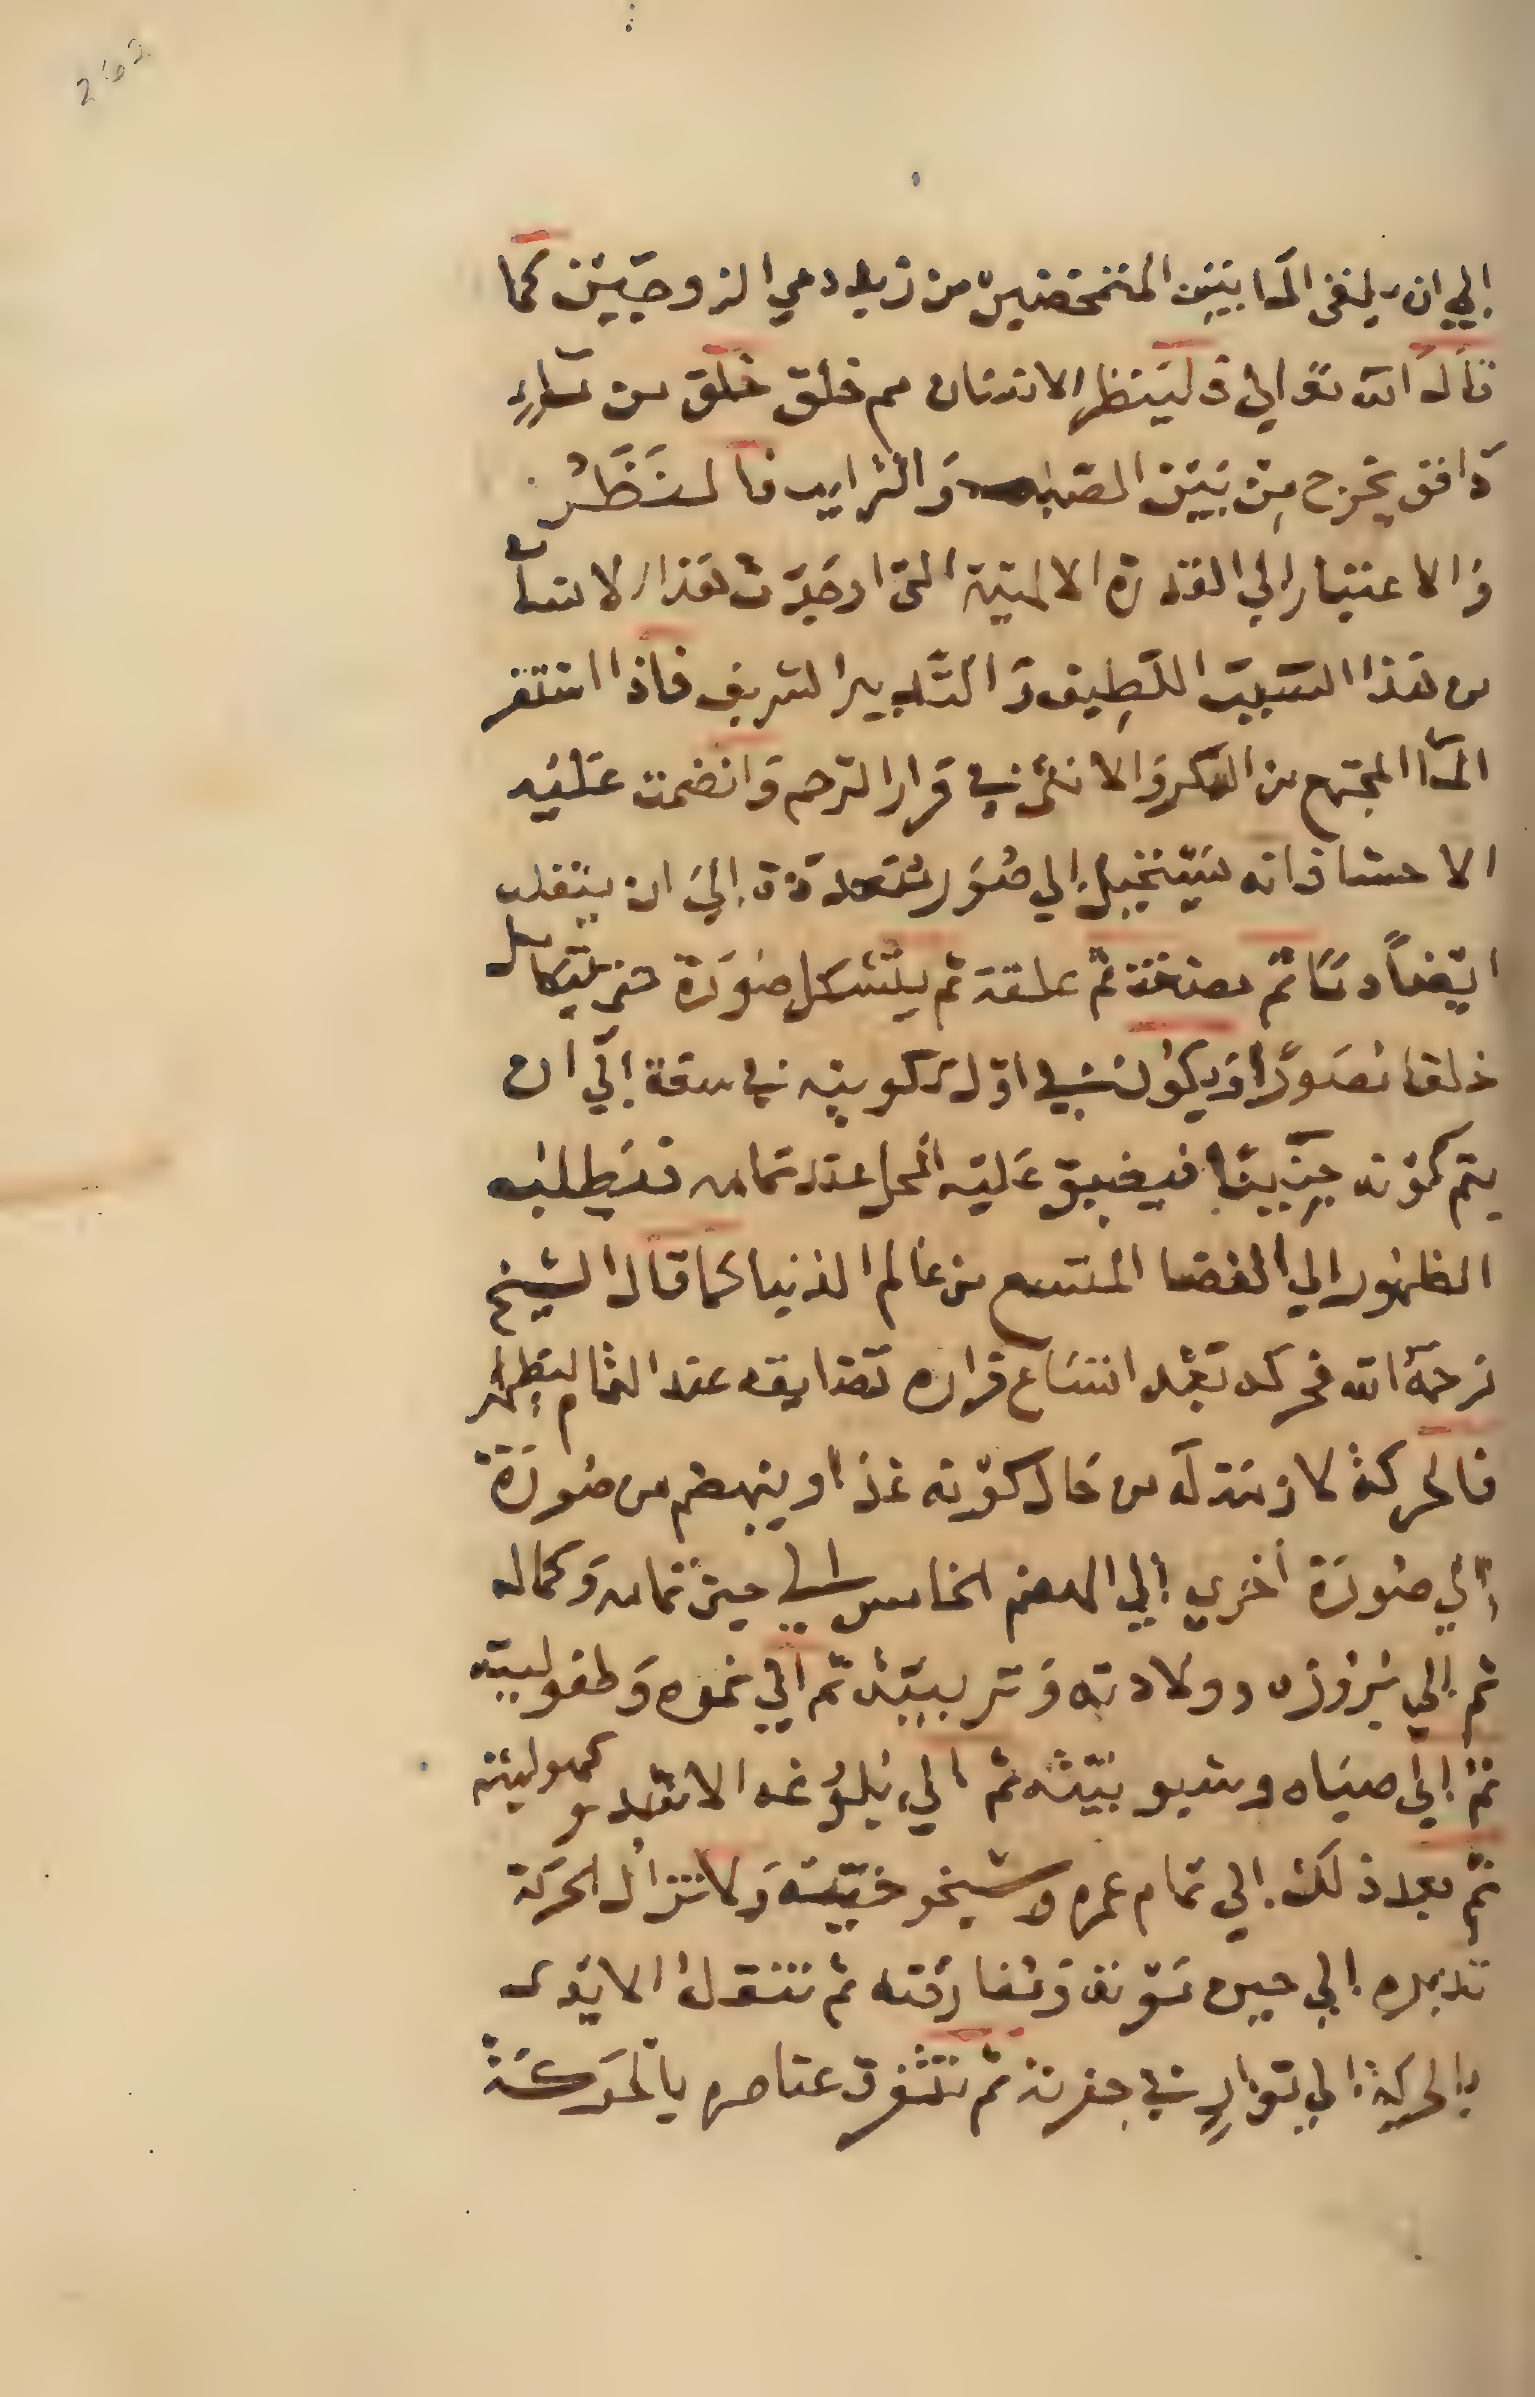 262
إلي ان يلتقي المآ بين المتمخضين من زبد دمي الزوجين كما
قال الله تعالي فلينظر الانسان مم خلق خلق من مآء
دافق يخرج من بين الصلب والترايب فالنظر
والاعتبار الي القدرة الالهية التي اوجدت هذا الانسان
من هذا السبب اللطيف والتدبير الشريف فاذا استقر
المآ المجتمع من الذكر والانثي في قرار الرحم وانضمت عليه
الاحشا فانه يستحيل إلي صور متعددة إلي ان ينقلب
ايضاً دماً ثم مضغة ثم علقة ثم يتشكل صورة حتي يتكامل
خلقا مصوراً ويكون في اول تكوينه في سعة إلي ان
يتم كونه جنينًا فيضيق عليه المحل عند تمامه فيطلب
الظهور الي الفضا المتسع من عالم الدنيا كما قال الشيخ
رحمه الله فحركه بعد اتساع قراره تضايقه عند التمام ليظهر
فالحركة لازمة له من حال كونه غذا وينهضم من صورة
إلي صورة أخري إلي الهضم الخامس الي حين تمامه وكماله
ثم إلي بروزه وولادته وتربيته ثم الي نموه وطفوليته
ثم إلي صباه وشبوبيته ثم الي بلوغه الاشد وكهوليته
ثم بعد ذلك إلي تمام عمره وشيخوخيته ولا تزال الحركة
تدبره إلي حين موته ومفارقته ثم تنقله الايدي
بالحركة الي توار في حفرته ثم تتفرق عناصره بالحركة